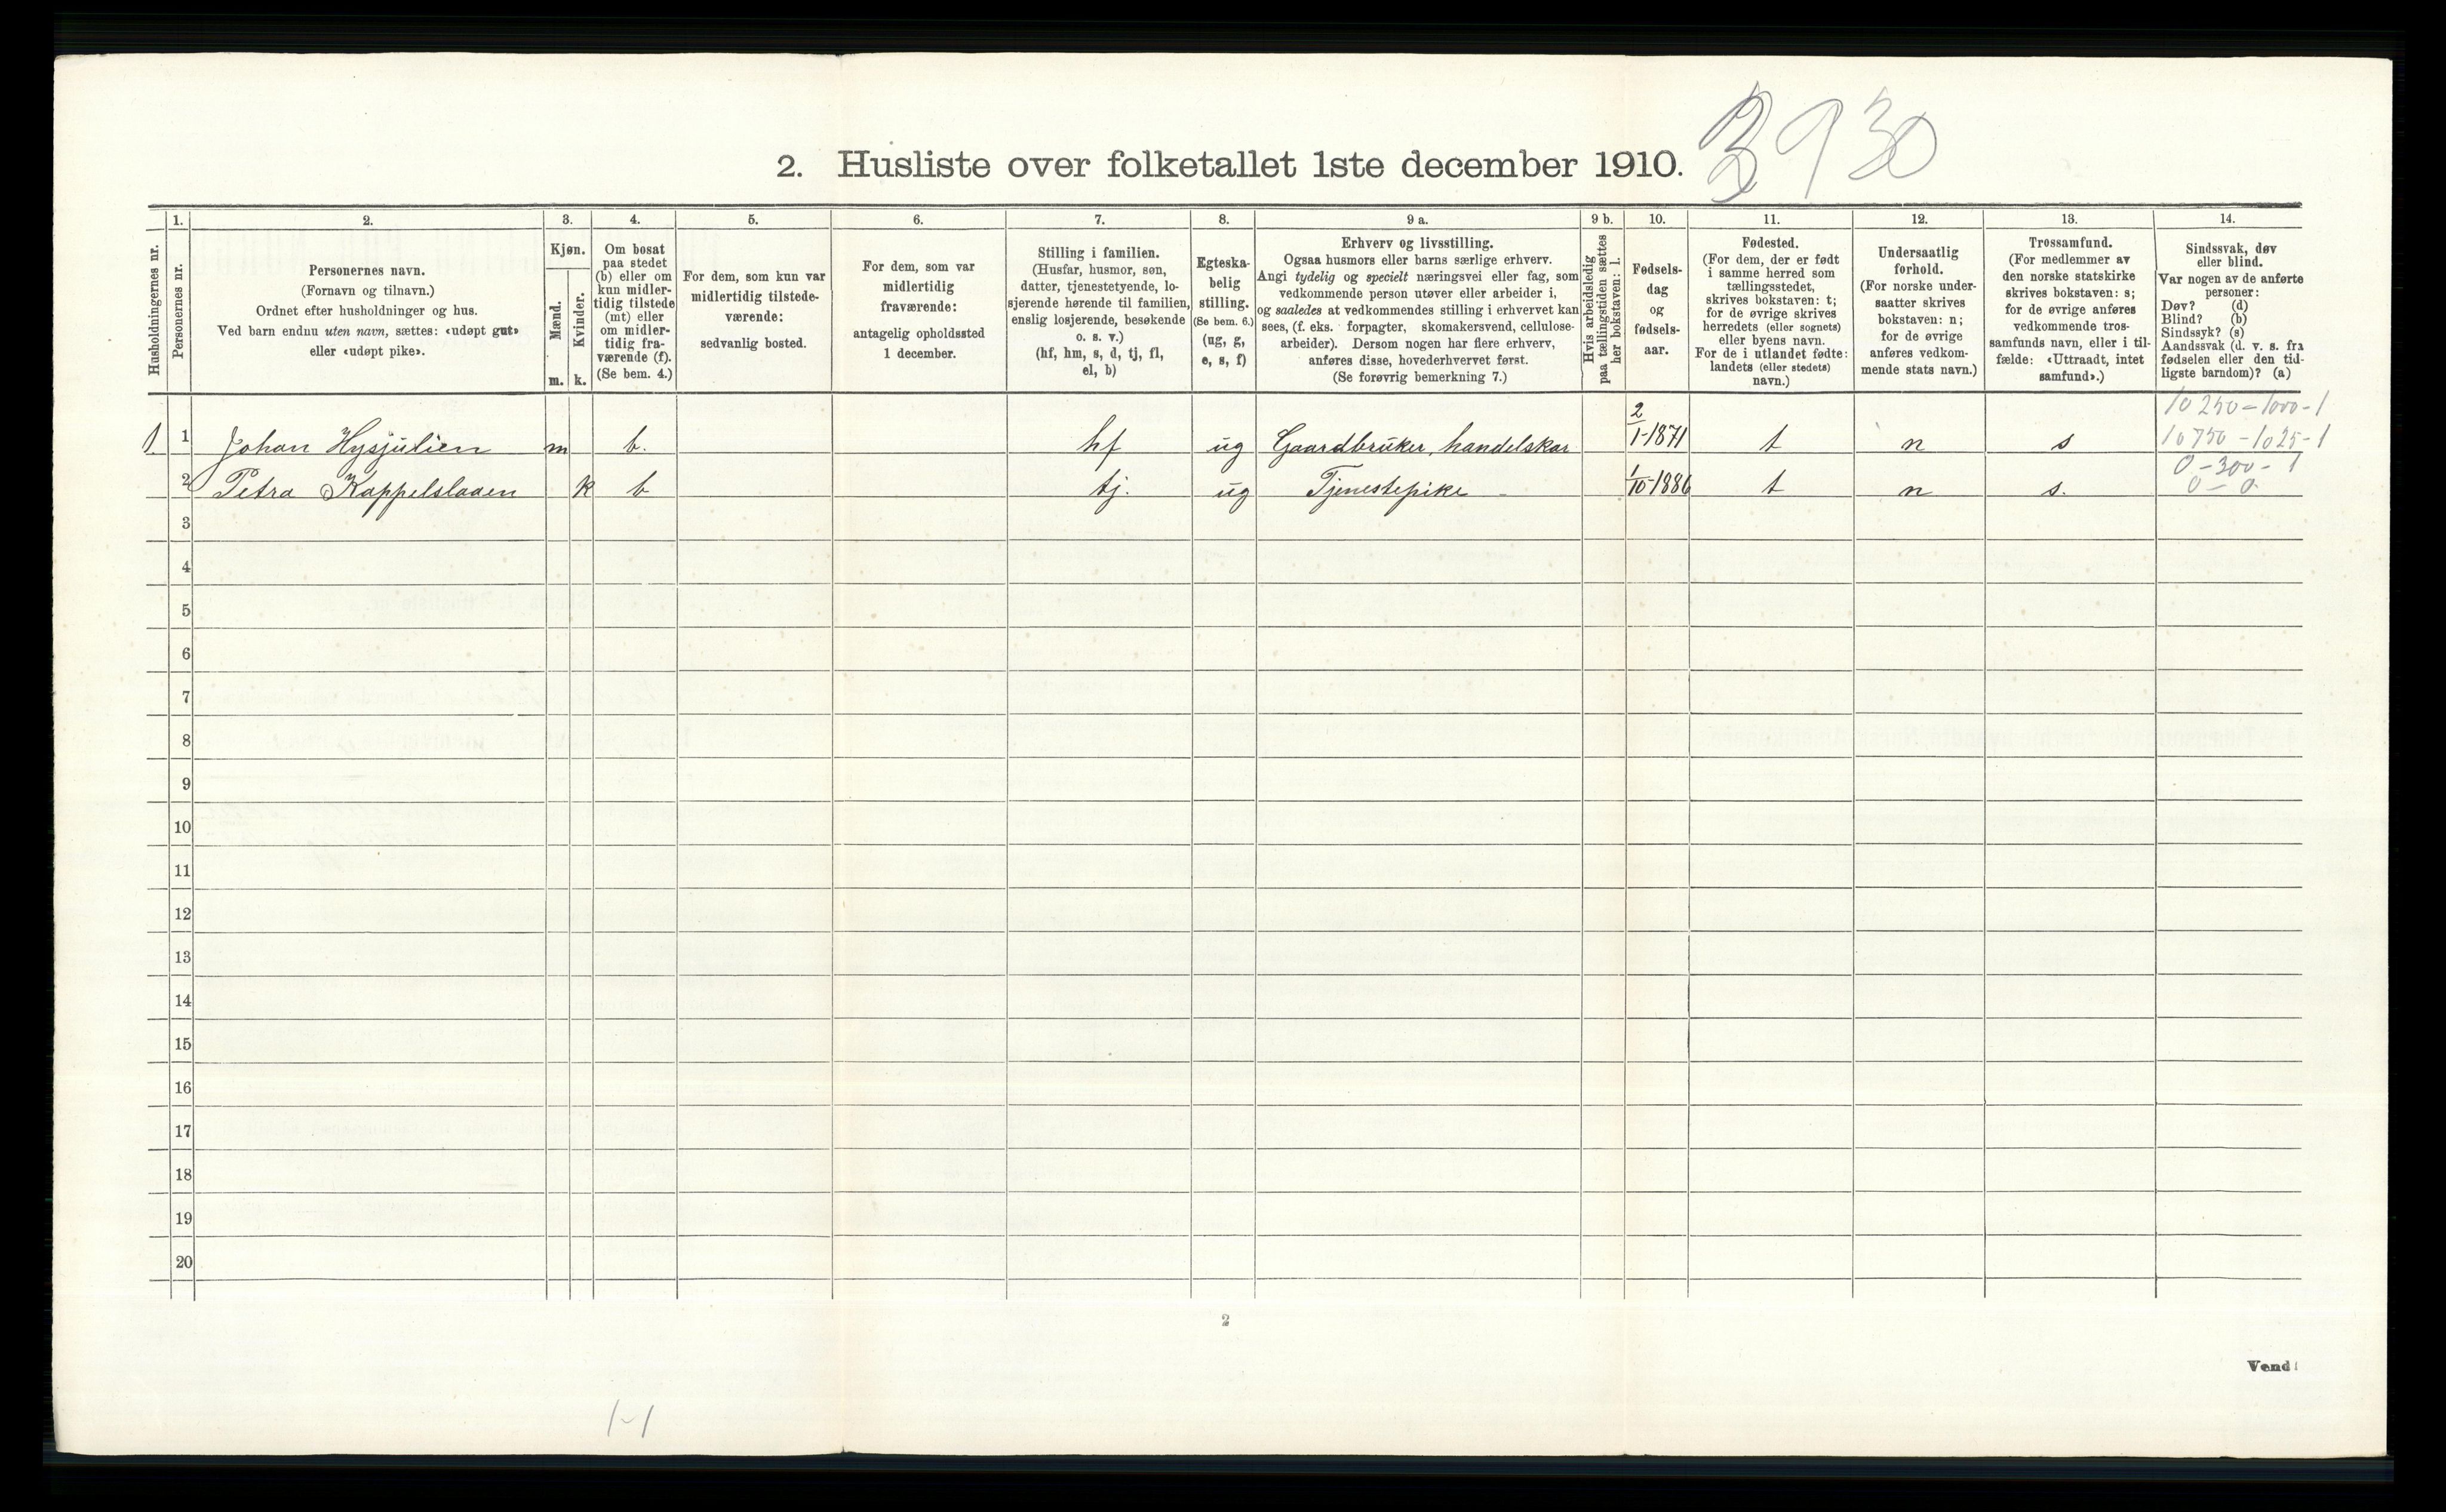 3930
2. Husliste over folketallet 1ste december 1910.
Husholdningernes nr.
1.
Personernes nr.
2.
Personernes navn.
(Fornavn og tilnavn.)
Ordnet efter husholdninger og hus.
Ved barn endnu uten navn, sættes: «udøpt gut»
eller «udøpt pike».
3.
Kjøn.
Mænd.
m.
Kvinder.
k.
4.
Om bosat
paa stedet
(b) eller om
kun midler-
tidig tilstede
(mt) eller
om midler-
tidig fra-
værende (f).
(Se bem. 4.)
5.
For dem, som kun var
midlertidig tilstede-
værende:
sedvanlig bosted.
6.
For dem, som var
midlertidig
fraværende:
antagelig opholdssted
1 december.
7.
Stilling i familien.
(Husfar, husmor, søn,
datter, tjenestetyende, lo-
sjerende hørende til familien,
enslig losjerende, besøkende
o. s. v.)
(hf, hm, s, d, tj, fl,
el, b)
8.
Egteska-
belig
stilling.
(Se bem. 6.)
(ug, g,
e, s, f)
9 a.
Erhverv og livsstilling.
Ogsaa husmors eller barns særlige erhverv.
Angi tydelig og specielt næringsvei eller fag, som
vedkommende person utøver eller arbeider i,
og saaledes at vedkommendes stilling i erhvervet kan
sees, (f. eks. forpagter, skomakersvend, cellulose-
arbeider). Dersom nogen har flere erhverv,
anføres disse, hovederhvervet først.
(Se forøvrig bemerkning 7.)
9 b.
Hvis arbeidsledig
paa tællingstiden sættes
her bokstaven: l.
10.
Fødsels-
dag
og
fødsels-
aar.
11.
Fødested.
(For dem, der er født
i samme herred som
tællingsstedet,
skrives bokstaven: t;
for de øvrige skrives
herredets (eller sognets)
eller byens navn.
For de i utlandet fødte:
landets (eller stedets)
navn.)
12.
Undersaatlig
forhold.
(For norske under-
saatter skrives
bokstaven: n;
for de øvrige
anføres vedkom-
mende stats navn.)
13.
Trossamfund.
(For medlemmer av
den norske statskirke
skrives bokstaven: s;
for de øvrige anføres
vedkommende tros-
samfunds navn, eller i til-
fælde: «Uttraadt, intet
samfund».)
14.
Sindssvak, døv
eller blind.
Var nogen av de anførte
personer:
Døv? (d)
Blind? (b)
Sindssyk? (s)
Aandssvak (d. v. s. fra
fødselen eller den tid-
ligste barndom)? (a)
10250-1000-1
1 1 Johan Hysjulien m b. hf ug Gaardbruker, handelskar 2/1-1871 t n s 10750-1025-1
0-300-1
2 Petra Kappelslaaen k b tj. ug Tjenestepike 1/10-1886 t n s. 0-0
3
4
5
6
7
8
9
10
11
12
13
14
15
16
17
18
19
20
2
Vend!
1-1